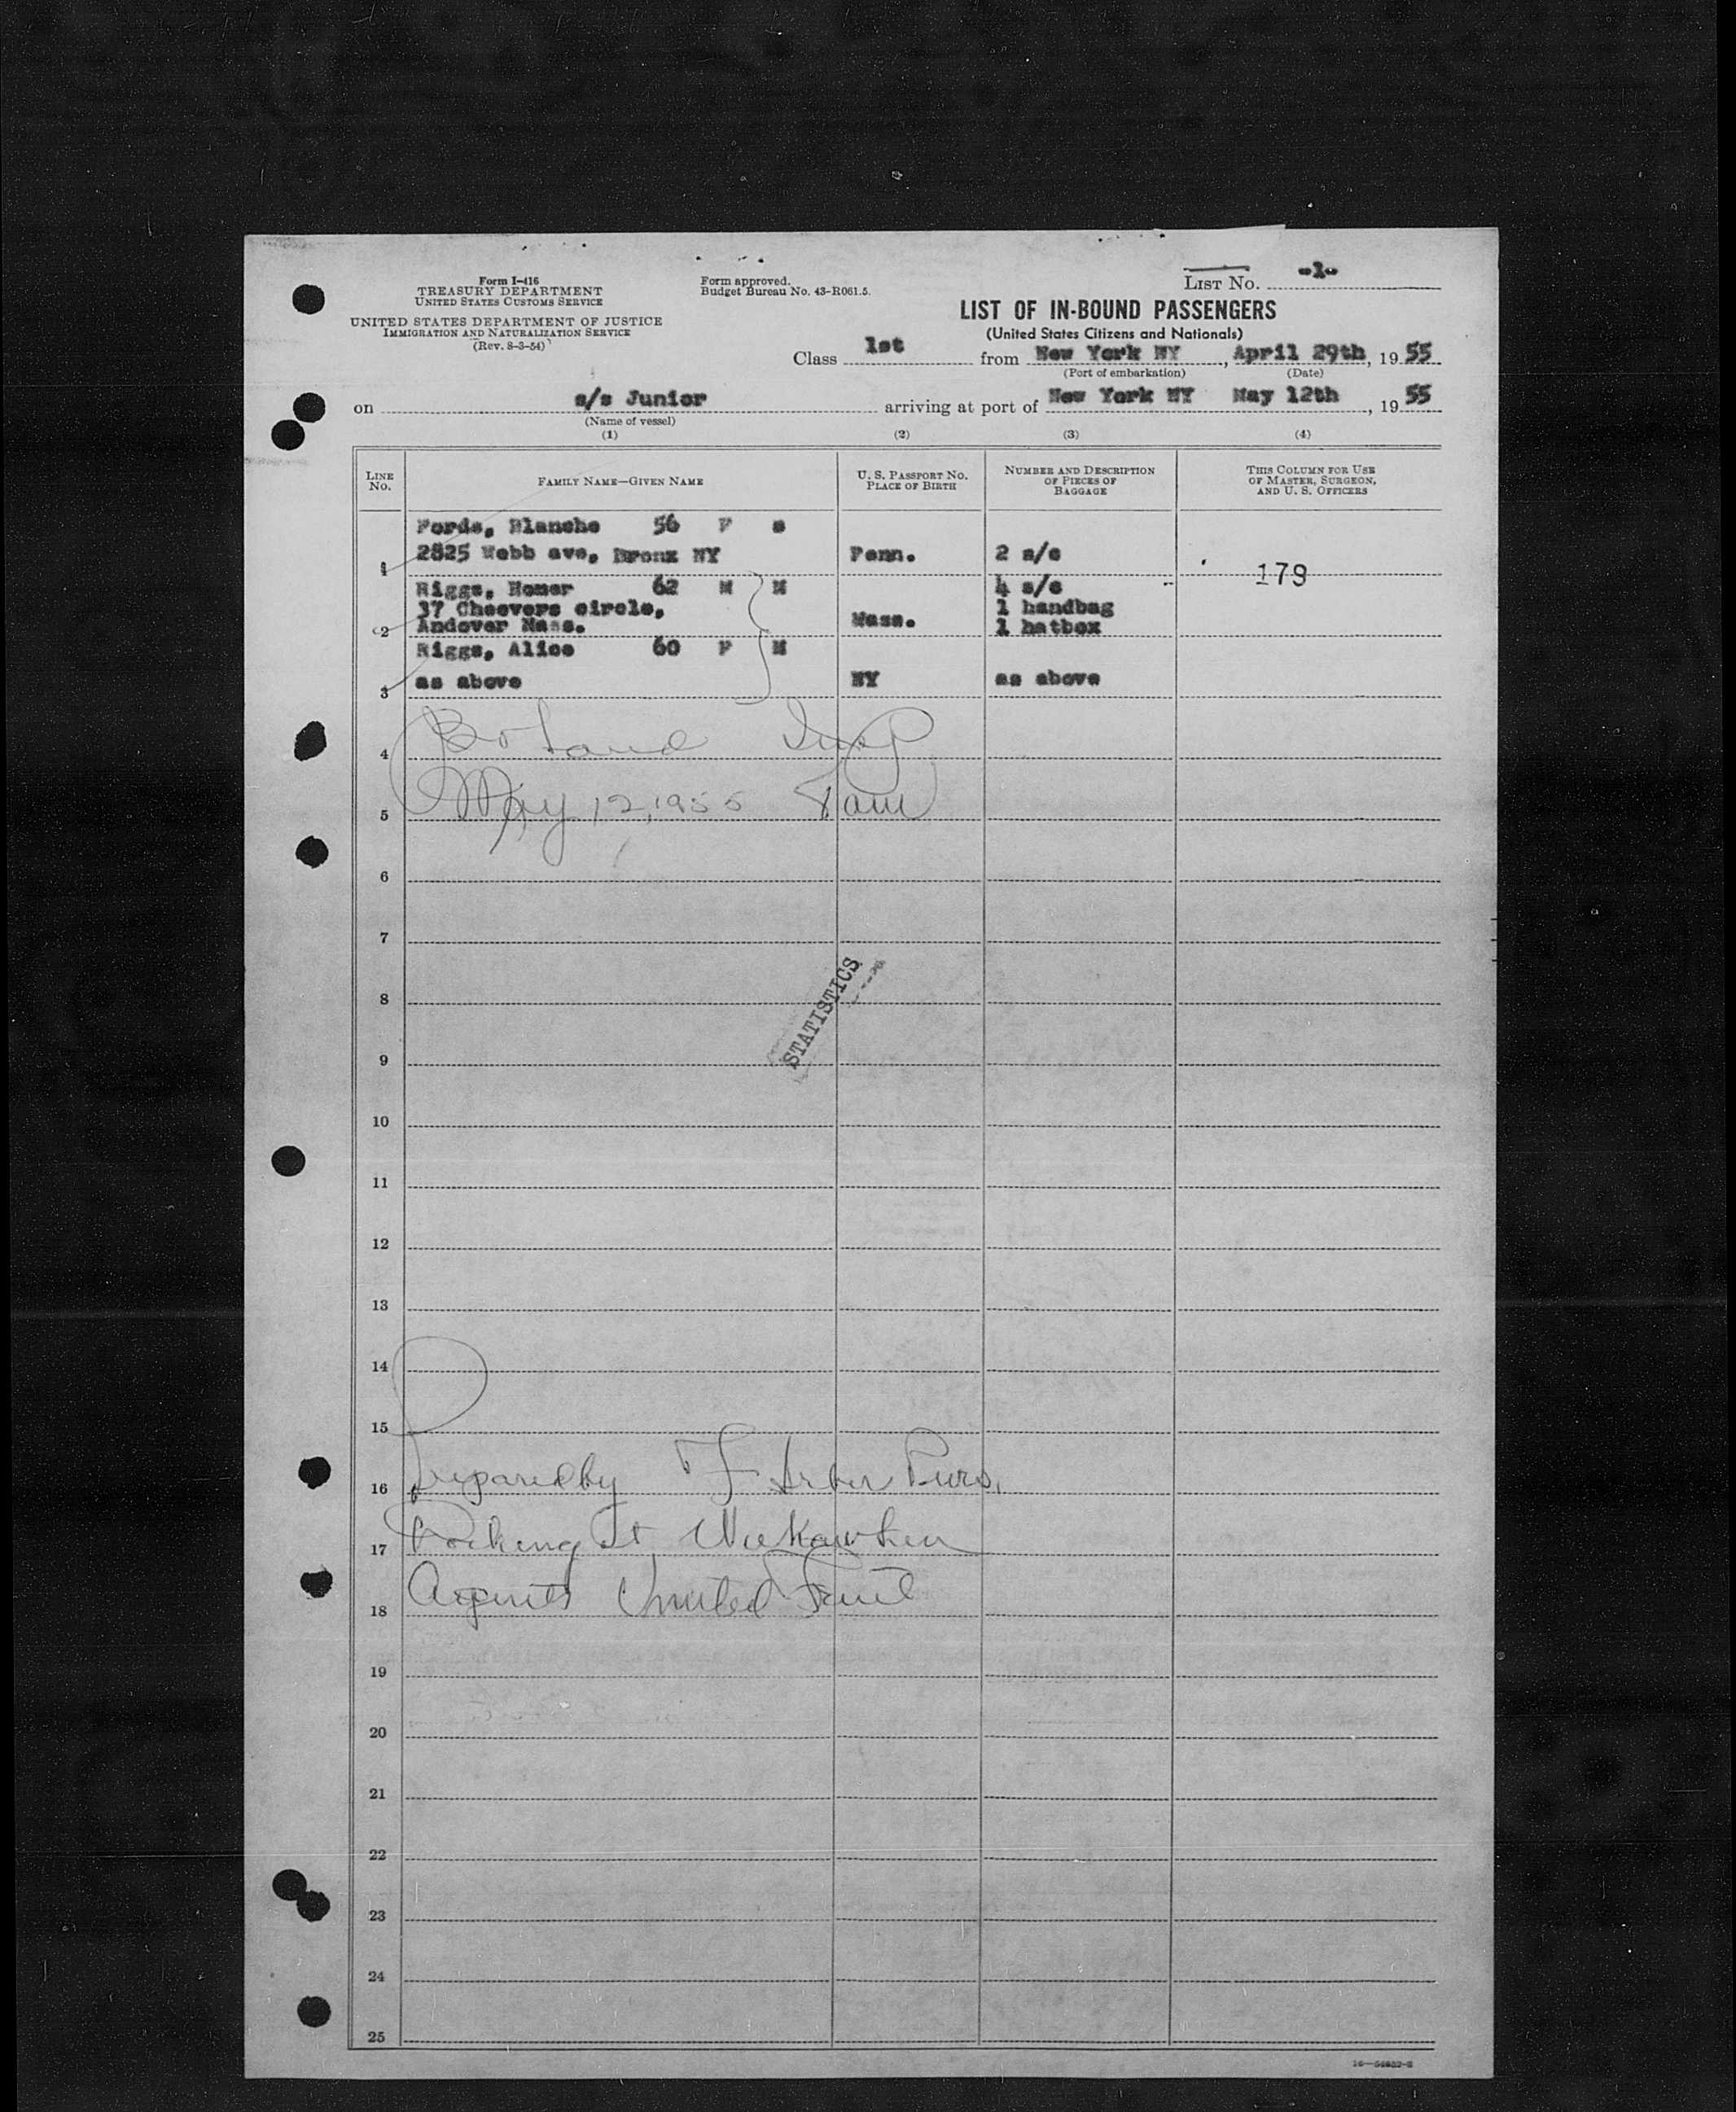 Form I-416
TREASURY DEPARTMENT
UNITED STATES CUSTOMS SERVICE
UNITED STATES DEPARTMENT OF JUSTICE
IMMIGRATION AND NATURALIZATION SERVICE
(Rev. 8-3-54)
Form approved.
Budget Bureau No. 43-R061.5.
LIST NO. -1-
LIST OF IN-BOUND PASSENGERS
(United States Citizens and Nationals)
Class 1st from New York NY, April 29th, 1955
(Port of embarkation) (Date)
on s/s Junior arriving at port of New York NY May 12th, 1955
(Name of vessel)
(1) (2) (3) (4)
LINE NO.
FAMILY NAME—GIVEN NAME
U. S. PASSPORT NO.
PLACE OF BIRTH
NUMBER AND DESCRIPTION
OF PIECES OF
BAGGAGE
THIS COLUMN FOR USE
OF MASTER, SURGEON,
AND U. S. OFFICERS
Fords, Blanche 56 F s
1 2825 Webb ave, Bronx NY Penn. 2 s/c
179
Riggs, Homer 62 M M 4 s/c
37 Cheevers circle, Mass. 1 handbag
2 Andover Mass. 1 hatbox
Riggs, Alice 60 F M
3 as above NY as above
4 Insp
5 May 12, 1955 8am
6
7
8
STATISTICS
9
10
11
12
13
14
15
16 Prepared by F Purs.
17 Docking at Weehawken
18 Agents United Fruit
19
20
21
22
23
24
25